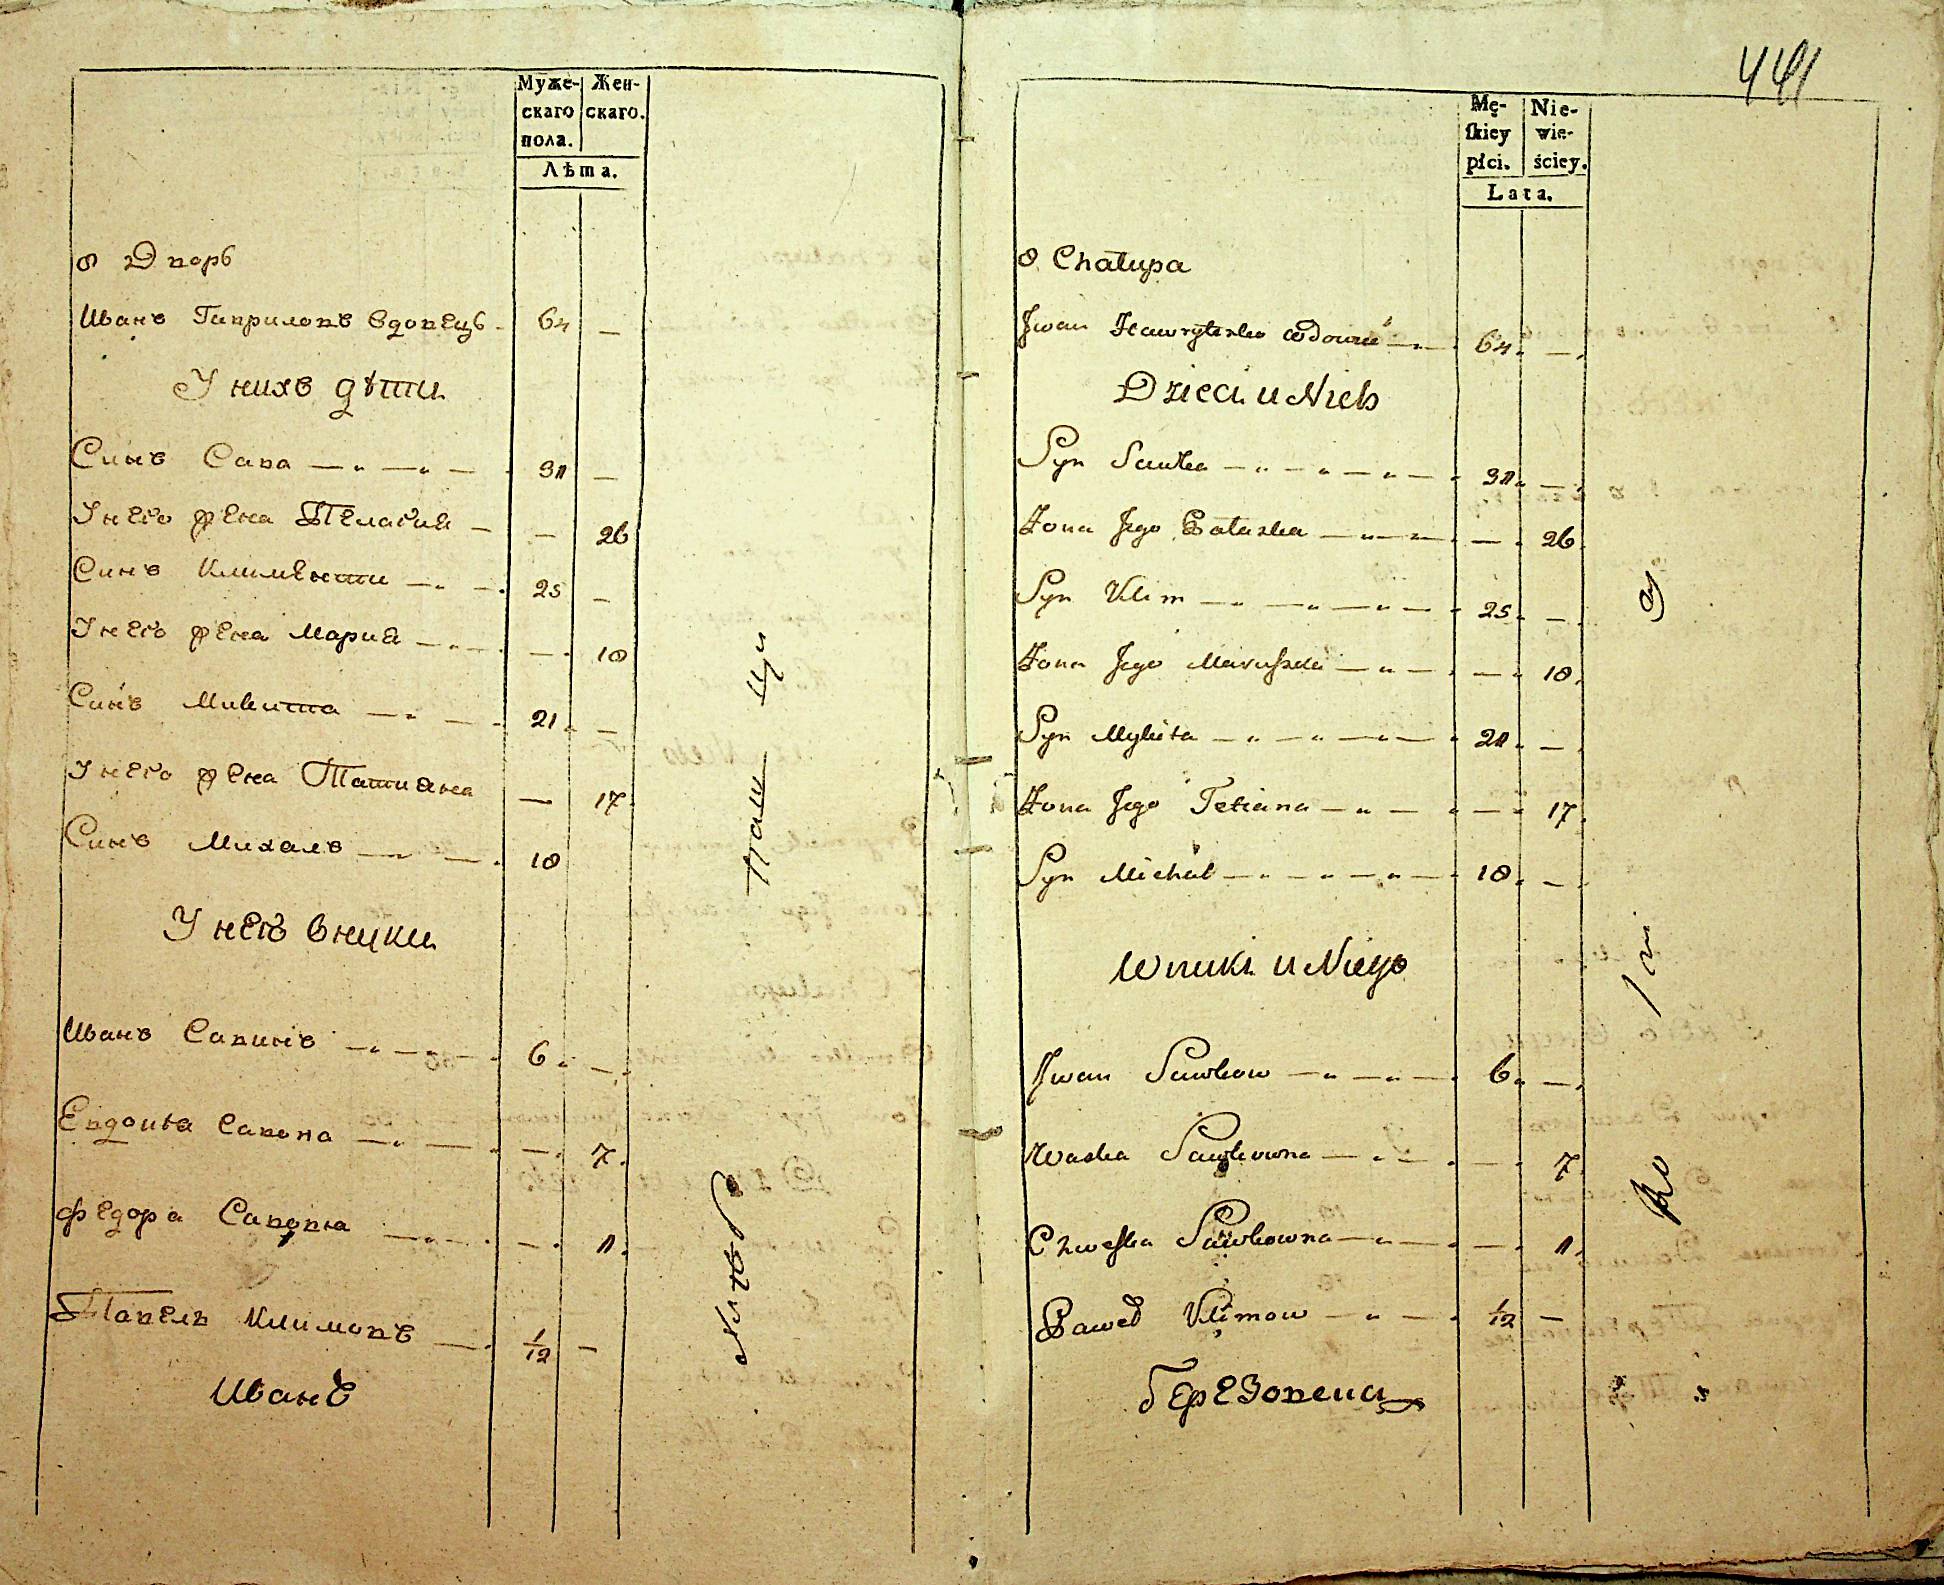 441
Муже- Жен-
скаго скаго.
пола.
Лѣта.
8 Дворъ
Иванъ Гавриловъ вдовецъ 64 —
У нихъ дѣти
Синъ Сава — „ — „ — 31 —
У него жена Пелагия — — 26
Синъ Климентии — „ — 25 —
У него жена Мария — „ — — 18
Синъ Микита — „ — 21 —
У него жена Татияна — 17
Синъ Михалъ — — 18
У него внуки
Иванъ Савинъ — „ — „ — 6 —
Евдокѣя Савона — „ — — 7
Федора Савовна — „ — „ — — 1
Павелъ Климовъ — 1/12 —
Иванъ
Mę- Nie-
skiey wie-
płci. ściey.
Lata.
8 Chałupa
Jwan Hawryłenko wdowiec — „ 64 —
Dzieci u Nich
Syn Sawka — „ — „ — „ — 31 —
Żona Jego Pałaszka — „ — „ — — 26
Syn Klim — „ — „ — „ — 25 —
Żona Jego Maruszka — „ — — 18
Syn Mykita — „ — „ — „ — 21 —
Żona Jego Tetiana — „ — — 17
Syn Michał — „ — „ — „ — 18 —
Wnuki u Niego
Jwan Sawkow — „ — „ — 6 —
Sawkowna — „ — — 7
Chweska Sawkowna — „ — — 1
Paweł Klimow — „ — 1/12 —
Березовски